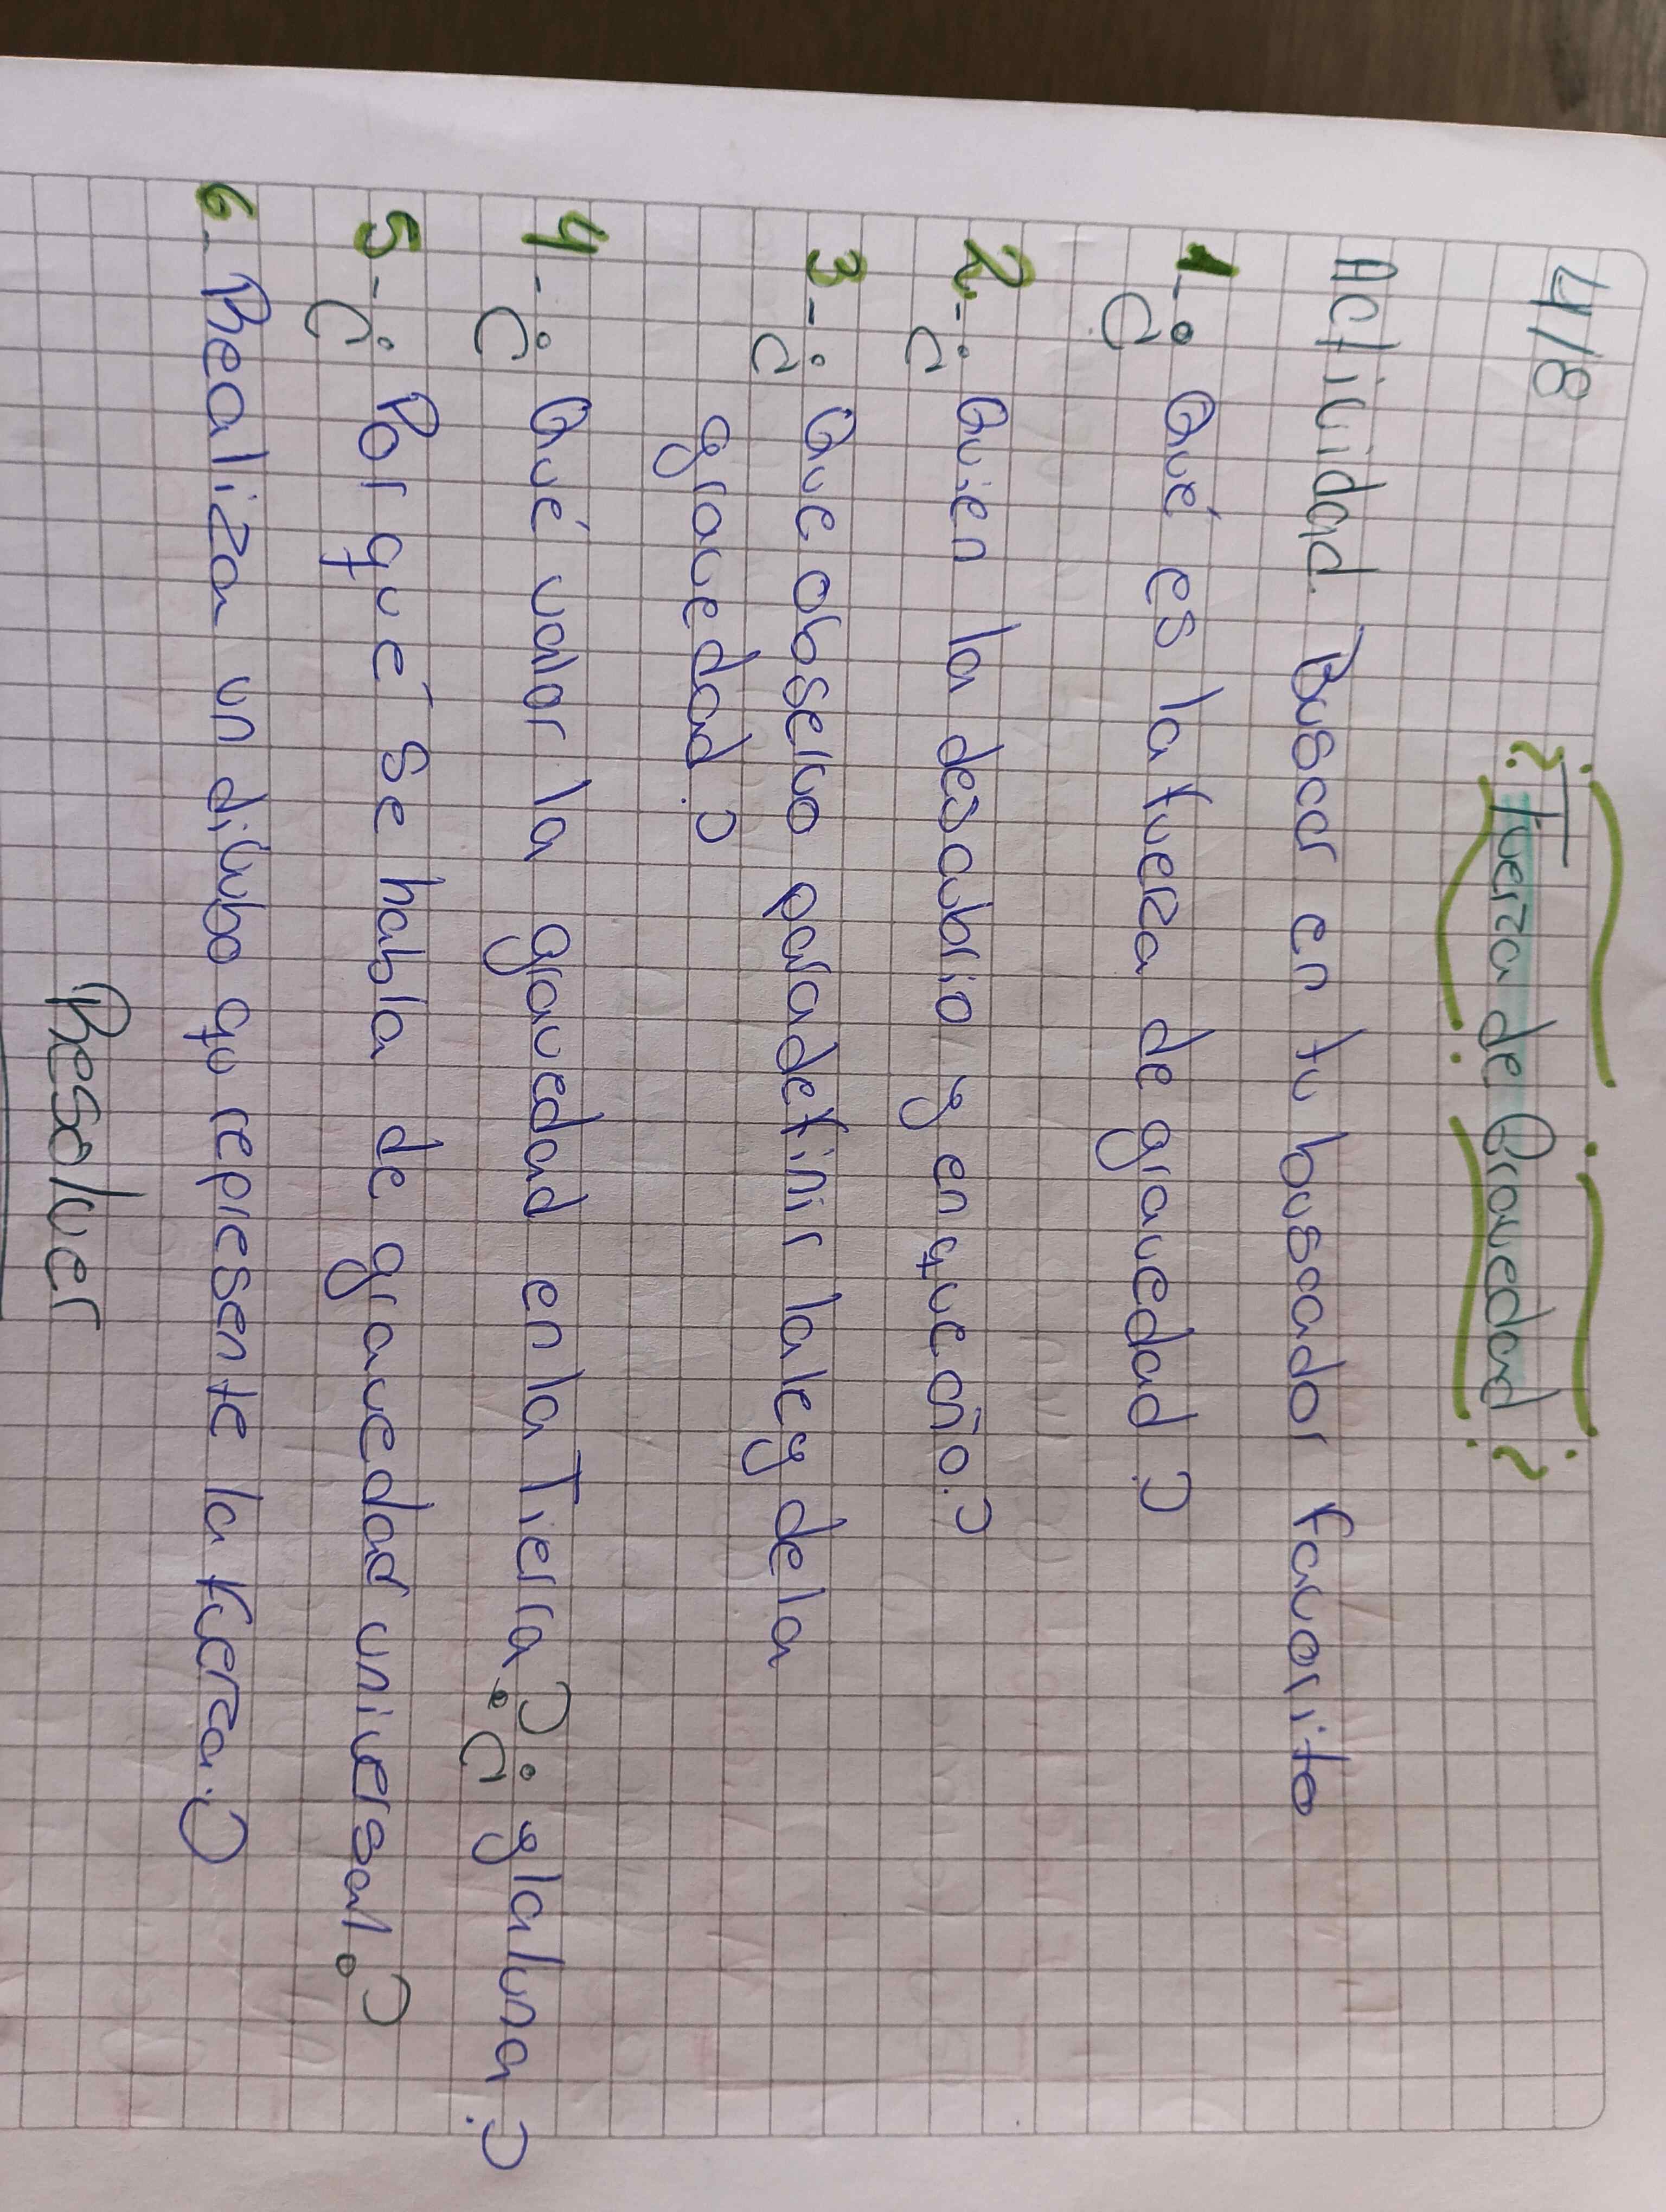 4/8
Fuerza de Gravedad
Actividad. Buscar en tu buscador favorito
1-¿Qué es la fuerza de gravedad?
2-¿Quien la descubrio y en que año?
3-¿Que observo para definir la ley de la
gravedad?
4-¿Qué valor la gravedad en la Tierra? ¿y la luna?
5-¿Por qué se habla de gravedad universal?
6-Realizar un dibubo qu represente la fuerza?
Resolver